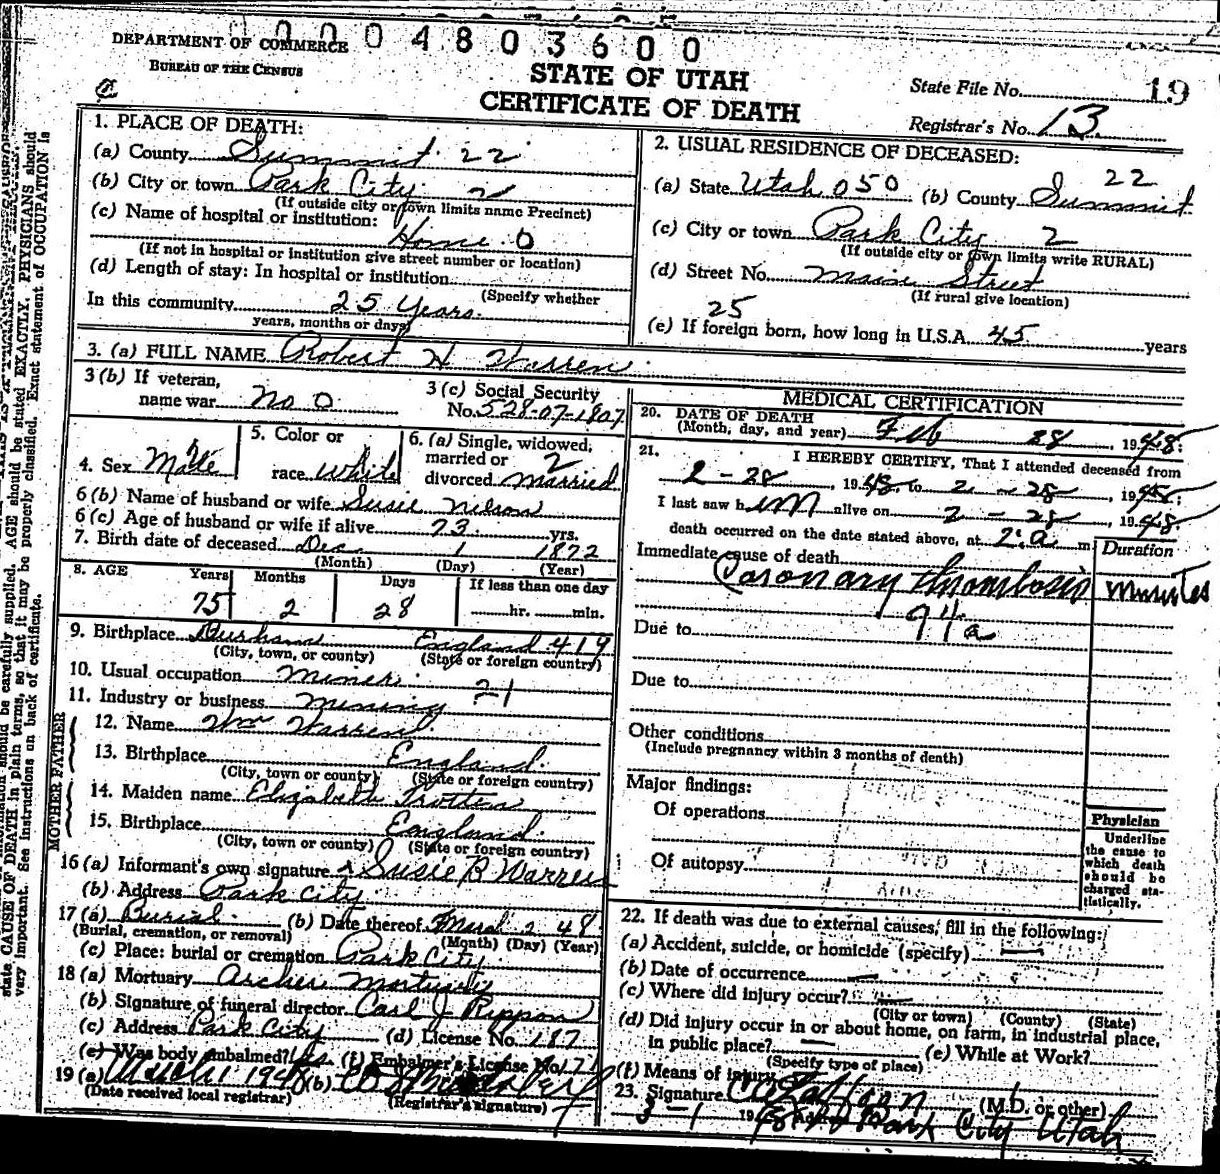 0004803600
DEPARTMENT OF COMMERCE
BUREAU OF THE CENSUS
STATE OF UTAH
CERTIFICATE OF DEATH
State File No. 19
Registrar's No. 13
1. PLACE OF DEATH:
(a) County Summit 22
(b) City or town Park City 2
(If outside city or town limits name Precinct)
(c) Name of hospital or institution:
Home 0
(If not in hospital or institution give street number or location)
(d) Length of stay: In hospital or institution
(Specify whether
In this community 25 Years.
years, months or days)
2. USUAL RESIDENCE OF DECEASED:
(a) State Utah 050 (b) County Summit 22
(c) City or town Park City 2
(If outside city or town limits write RURAL)
(d) Street No. Main Street
(If rural give location)
25
(e) If foreign born, how long in U.S.A. 45 years
3. (a) FULL NAME Robert H Warren
3 (b) If veteran, name war No 0
3 (c) Social Security No. 528-07-1807
4. Sex Male
5. Color or race white
6. (a) Single, widowed, married or divorced Married 2
6 (b) Name of husband or wife Susie Nilson
6 (c) Age of husband or wife if alive 73 yrs.
7. Birth date of deceased Dec. 1 1872
(Month) (Day) (Year)
8. AGE Years Months Days If less than one day
75 2 28 hr. min.
9. Birthplace England 419
(City, town, or county) (State or foreign country)
10. Usual occupation Miner
11. Industry or business Mining 21
FATHER
12. Name Wm Warren
13. Birthplace England
(City, town or county) (State or foreign country)
MOTHER
14. Maiden name Elizabeth Trotter
15. Birthplace England
(City, town or county) (State or foreign country)
16 (a) Informant's own signature x Susie B Warren
(b) Address Park City
17 (a) Burial (b) Date thereof March 2 48
(Burial, cremation, or removal) (Month) (Day) (Year)
(c) Place: burial or cremation Park City
18 (a) Mortuary Archer Mortuary
(b) Signature of funeral director Carl J Rippon
(c) Address Park City (d) License No. 187
(e) Was body embalmed? Yes (f) Embalmer's License No. 171
19 (a) March 1 1948 (b)
(Date received local registrar) (Registrar's signature)
MEDICAL CERTIFICATION
20. DATE OF DEATH
(Month, day, and year) Feb 28, 1948
21. I HEREBY CERTIFY, That I attended deceased from
2 - 28, 1948, to 2 - 28, 1948;
I last saw him alive on 2 - 28, 1948.
death occurred on the date stated above, at 2:a m.
Immediate cause of death Duration
Coronary thrombosis Minutes
94a
Due to
Due to
Other conditions
(Include pregnancy within 3 months of death)
Major findings:
Of operations
Of autopsy
Physician
Underline
the cause to
which death
should be
charged sta-
tistically.
22. If death was due to external causes, fill in the following:
(a) Accident, suicide, or homicide (specify)
(b) Date of occurrence
(c) Where did injury occur?
(City or town) (County) (State)
(d) Did injury occur in or about home, on farm, in industrial place,
in public place? (e) While at Work?
(Specify type of place)
(f) Means of injury
23. Signature (M.D. or other)
3 - 1 19 Park City Utah
should be carefully supplied. AGE should be stated EXACTLY. PHYSICIANS should
state CAUSE OF DEATH in plain terms, so that it may be properly classified. Exact statement of OCCUPATION is
very important. See instructions on back of certificate.